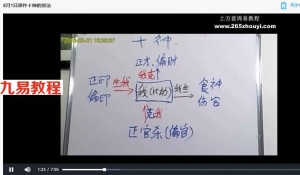 8月1日课件十神的排法
上万套周易教程
www.265zhouyi.com
十神
正才、偏财
我克
正印
偏印
生我
我(比劫)
我生
食神
伤官
克我
正官杀(偏官)
九易教程
1:23 / 7:55